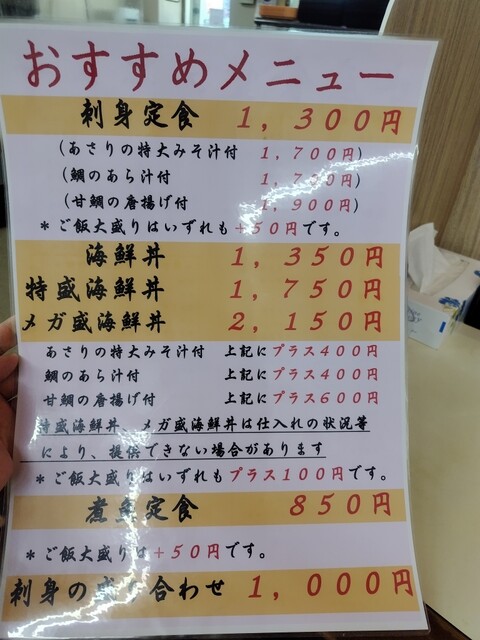 おすすめメニュー
刺身定食 １，３００円
（あさりの特大みそ汁付 １，７００円）
（鯛のあら汁付 １，７００円）
（甘鯛の唐揚げ付 １，９００円）
＊ご飯大盛りはいずれも＋５０円です。
海鮮丼 １，３５０円
特盛海鮮丼 １，７５０円
メガ盛海鮮丼 ２，１５０円
あさりの特大みそ汁付 上記にプラス４００円
鯛のあら汁付 上記にプラス４００円
甘鯛の唐揚げ付 上記にプラス６００円
特盛海鮮丼、メガ盛海鮮丼は仕入れの状況等
により、提供できない場合があります
＊ご飯大盛りはいずれもプラス１００円です。
煮魚定食 ８５０円
＊ご飯大盛りは＋５０円です。
刺身の盛り合わせ １，０００円